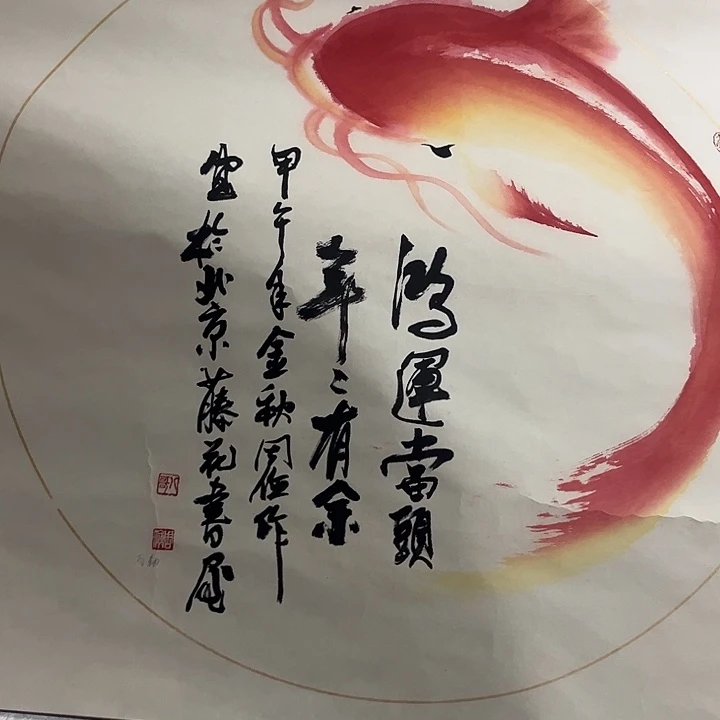 鸿運當頭
年〻有余
甲午年金秋周恒作
宝於北京藤花書屋